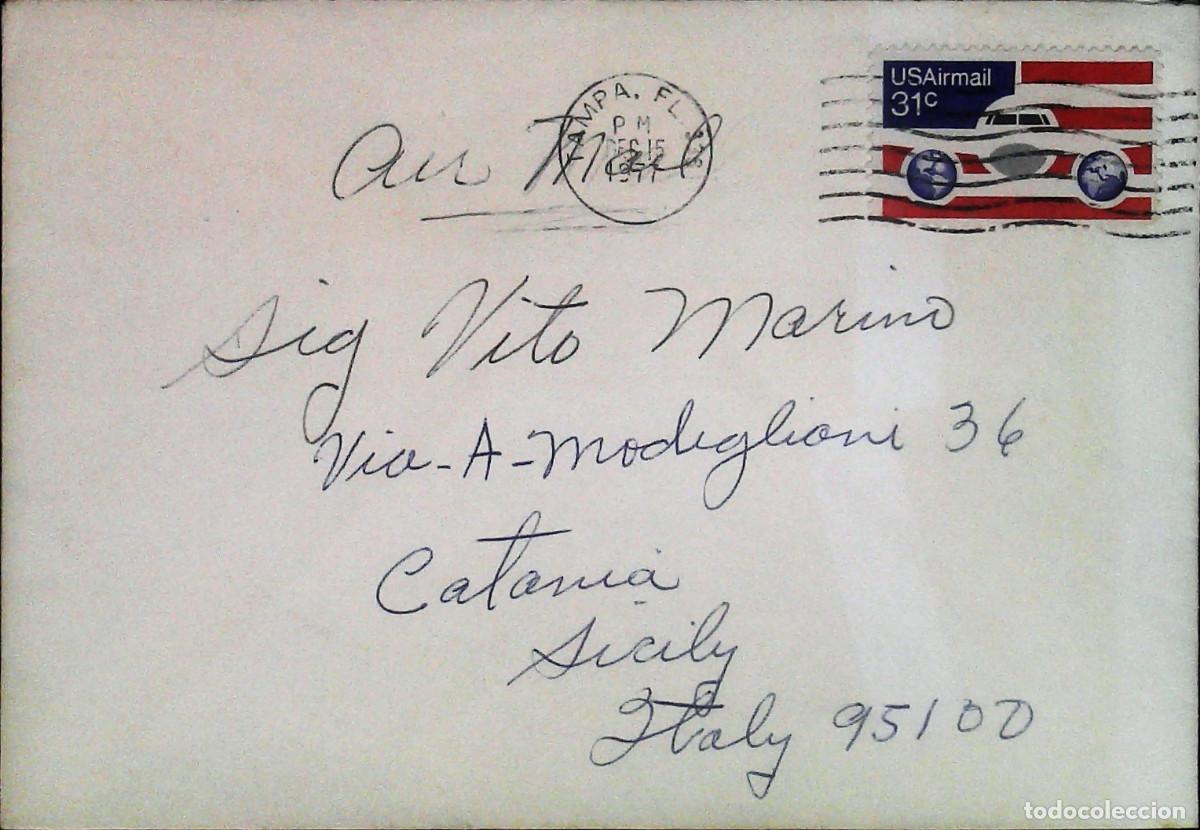 USAirmail
31c
TAMPA, FL.
PM
DEC 15
1977
Air Mail
Sig Vito Marino
Via-A-Modiglioni 36
Catania
Sicily
Italy 95100
todocoleccion